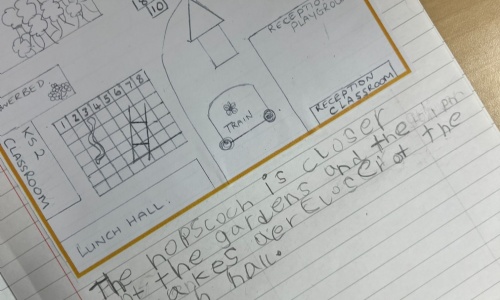 8
10
RECEPTION
PLAYGROU
VERBED
1 2 3 4 5 6 7 8
KS2
CLASSROOM
TRAIN
RECEPTION
CLASSROOM
LUNCH HALL.
The hopscoch is closer
at the gardens and the
akes wer closer at the
hall.